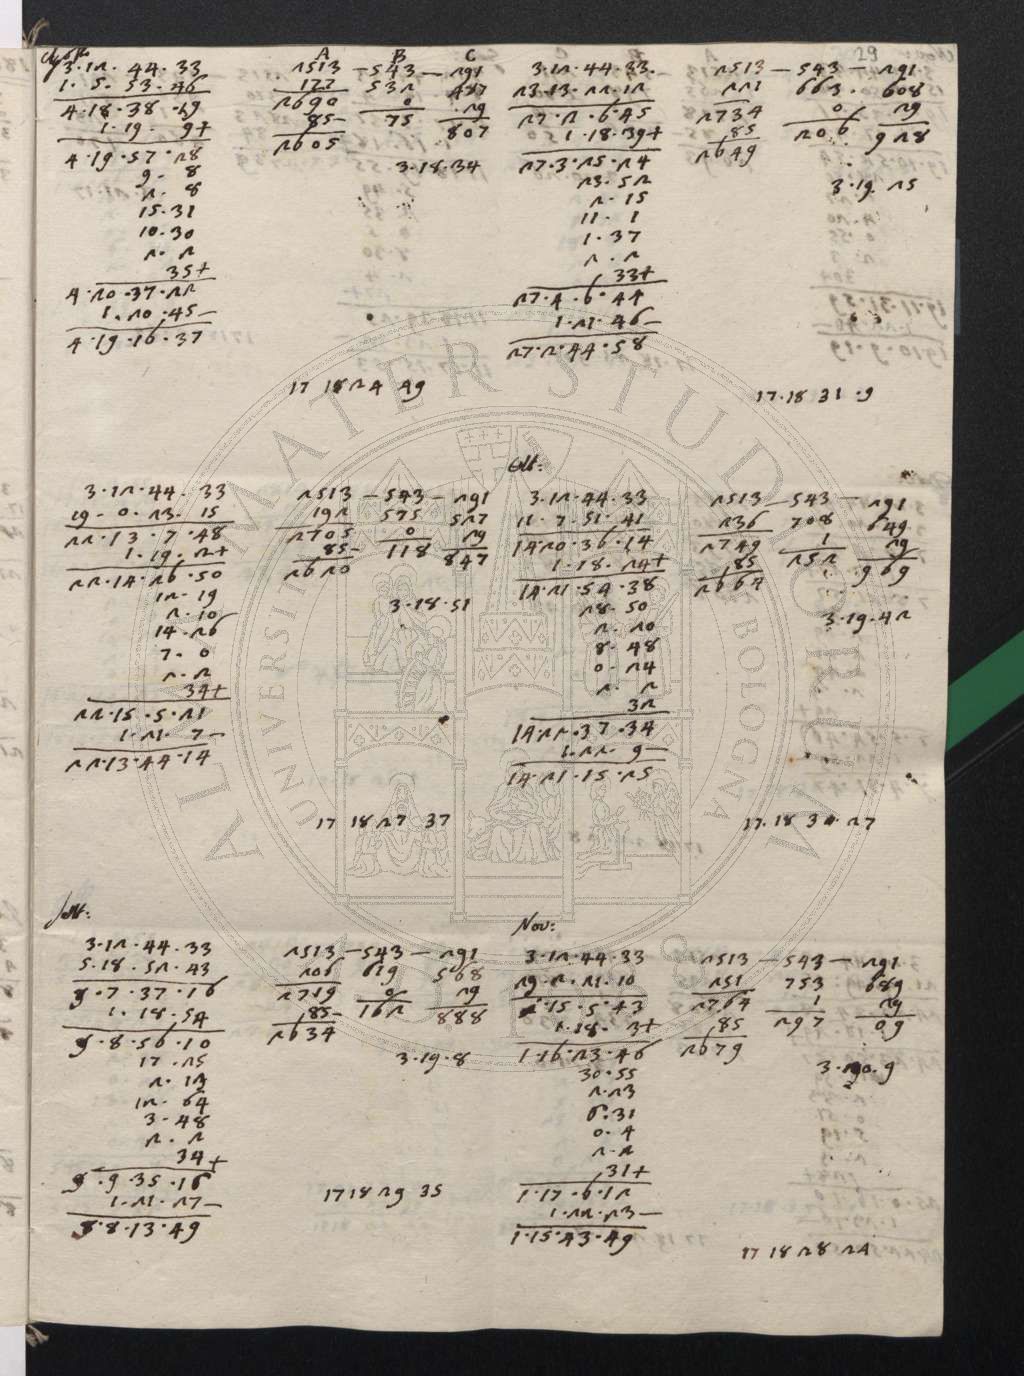 29
3.12.44.33
1.5.53.46
4.18.38.19
1.19. 9+
4.19.57.28
9. 8
2. 8
15.31
10.30
2. 2
35+
4.20.37.22
1.20.45—
4.19.16.37
A B C
2513 — 543 — 291
177 532 487
2690 0 29
85— 75 807
2605
3.18.34
17 18 24 49
3.12.44.33.
23.13.22.12
27.2.6.45
1.18.39+
27.3.25.24
23.52
2.15
11. 1
1.37
2. 2
33+
27.4.6.44
1.21.46—
27.2.44.58
2513 — 543 — 291
221 663. 608
2734 0 29
85 206 928
2649
3.19.25
17.18 31.9
3.12.44.33
19.0.23.15
22.13.7.48
1.19.2+
22.14.26.50
12.19
2.10
14.26
7. 0
2. 2
34+
22.15.5.21
1.21. 7—
22.13.44.14
2513 — 543 — 291
192 575 527
2705 0 29
85— 118 847
2620
3.18.51
17 18 27 37
Ott:
3.12.44.33
11.7.51.41
14.20.36.14
1.18.24+
14.21.54.38
28.50
2.20
8.48
0.24
2. 2
32
14.22.37.34
1.22. 9—
14.21.15.25
2513 — 543 — 291
236 708 649
2749 1 29
85 252 969
2664
3.19.42
17.18 30.27
Sett:
3.12.44.33
5.18.52.43
9.7.37.16
1.18.54
9.8.56.10
17.25
2.12
12.64
3.48
2. 2
34+
9.9.35.16
1.21.27—
8.8.13.49
2513 — 543 — 291
206 619 568
2719 0 29
85— 162 888
2634
3.19.8
17 18 29 35
Nov:
3.12.44.33
29.2.21.10
1.15.5.43
1.18. 3+
1.16.23.46
30.55
2.23
6.31
0.4
2.2
31+
1.17.6.12
1.22.23—
1.15.43.49
2513 — 543 — 291
251 753 689
2764 1 29
85 297 09
2679
3.20.9
17 18 28 24
ALMA MATER STUDIORUM
UNIVERSITÀ DI BOLOGNA